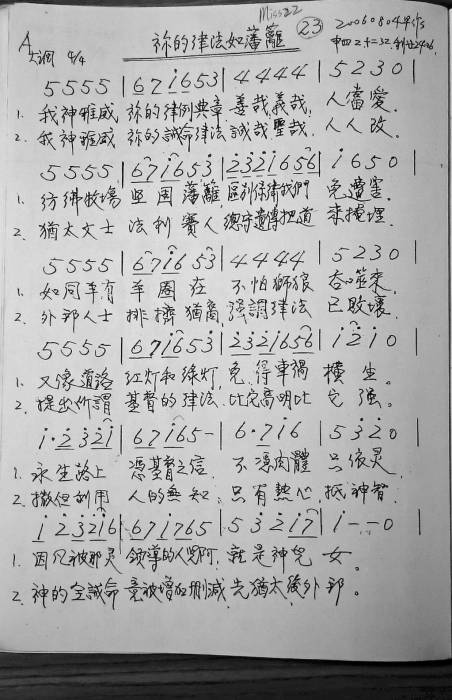 Miss22
祢的律法如藩籬 23 20060804
A大調 4/4
5555 | 671̇653 | 4444 | 5230 |
1. 我神雅威 祢的律例典章 善哉義哉, 人當愛。
2. 我神雅威 祢的誡命律法 誠哉聖哉, 人人改。
5555 | 671̇653 | 2̇3̇2̇1̇656 | 1̇650 |
1. 彷彿牧場 堅固藩籬 區別保衛我們 免遭害.
2. 猶太文士 法利賽人 總守遺傳把道 來掩埋.
5555 | 671̇653 | 4444 | 5230 |
1. 如同羊有 羊圈在 不怕獅狼 吞噬來.
2. 外邦人士 排擠猶裔 強調律法 已敗壞.
5555 | 671̇653 | 2̇3̇2̇1̇656 | 1̇2̇1̇0 |
1. 又像道路 紅灯和綠灯, 免得車禍 橫生。
2. 提出所謂 基督的律法 比它高明比 它強。
1̇·2̇3̇2̇1̇ | 671̇65- | 6·71̇6 | 53̇2̇0 |
1. 永生路上 憑基督之信 不憑肉體 只依靈.
2. 撒但利用 人的無知, 只有熱心, 抵神智.
1̇2̇3̇2̇1̇6 | 671̇765 | 532̇1̇7 | 1̇--0 |
1. 因凡被那灵 領導的人 就是神兒 女。
2. 神的全誡命 竟被增加刪減 先猶太後外 邦。